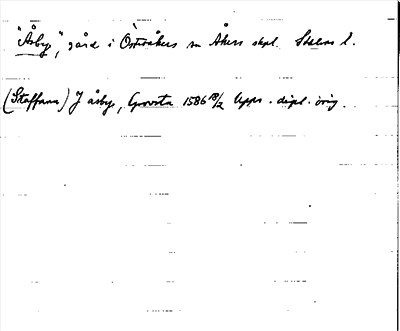 "Åsby", gård i Österåkers sn Åkers skpl. Sthlms l.
(Staffann) J åsby, Grovsta 1586 18/2 Upps. dipl. orig.